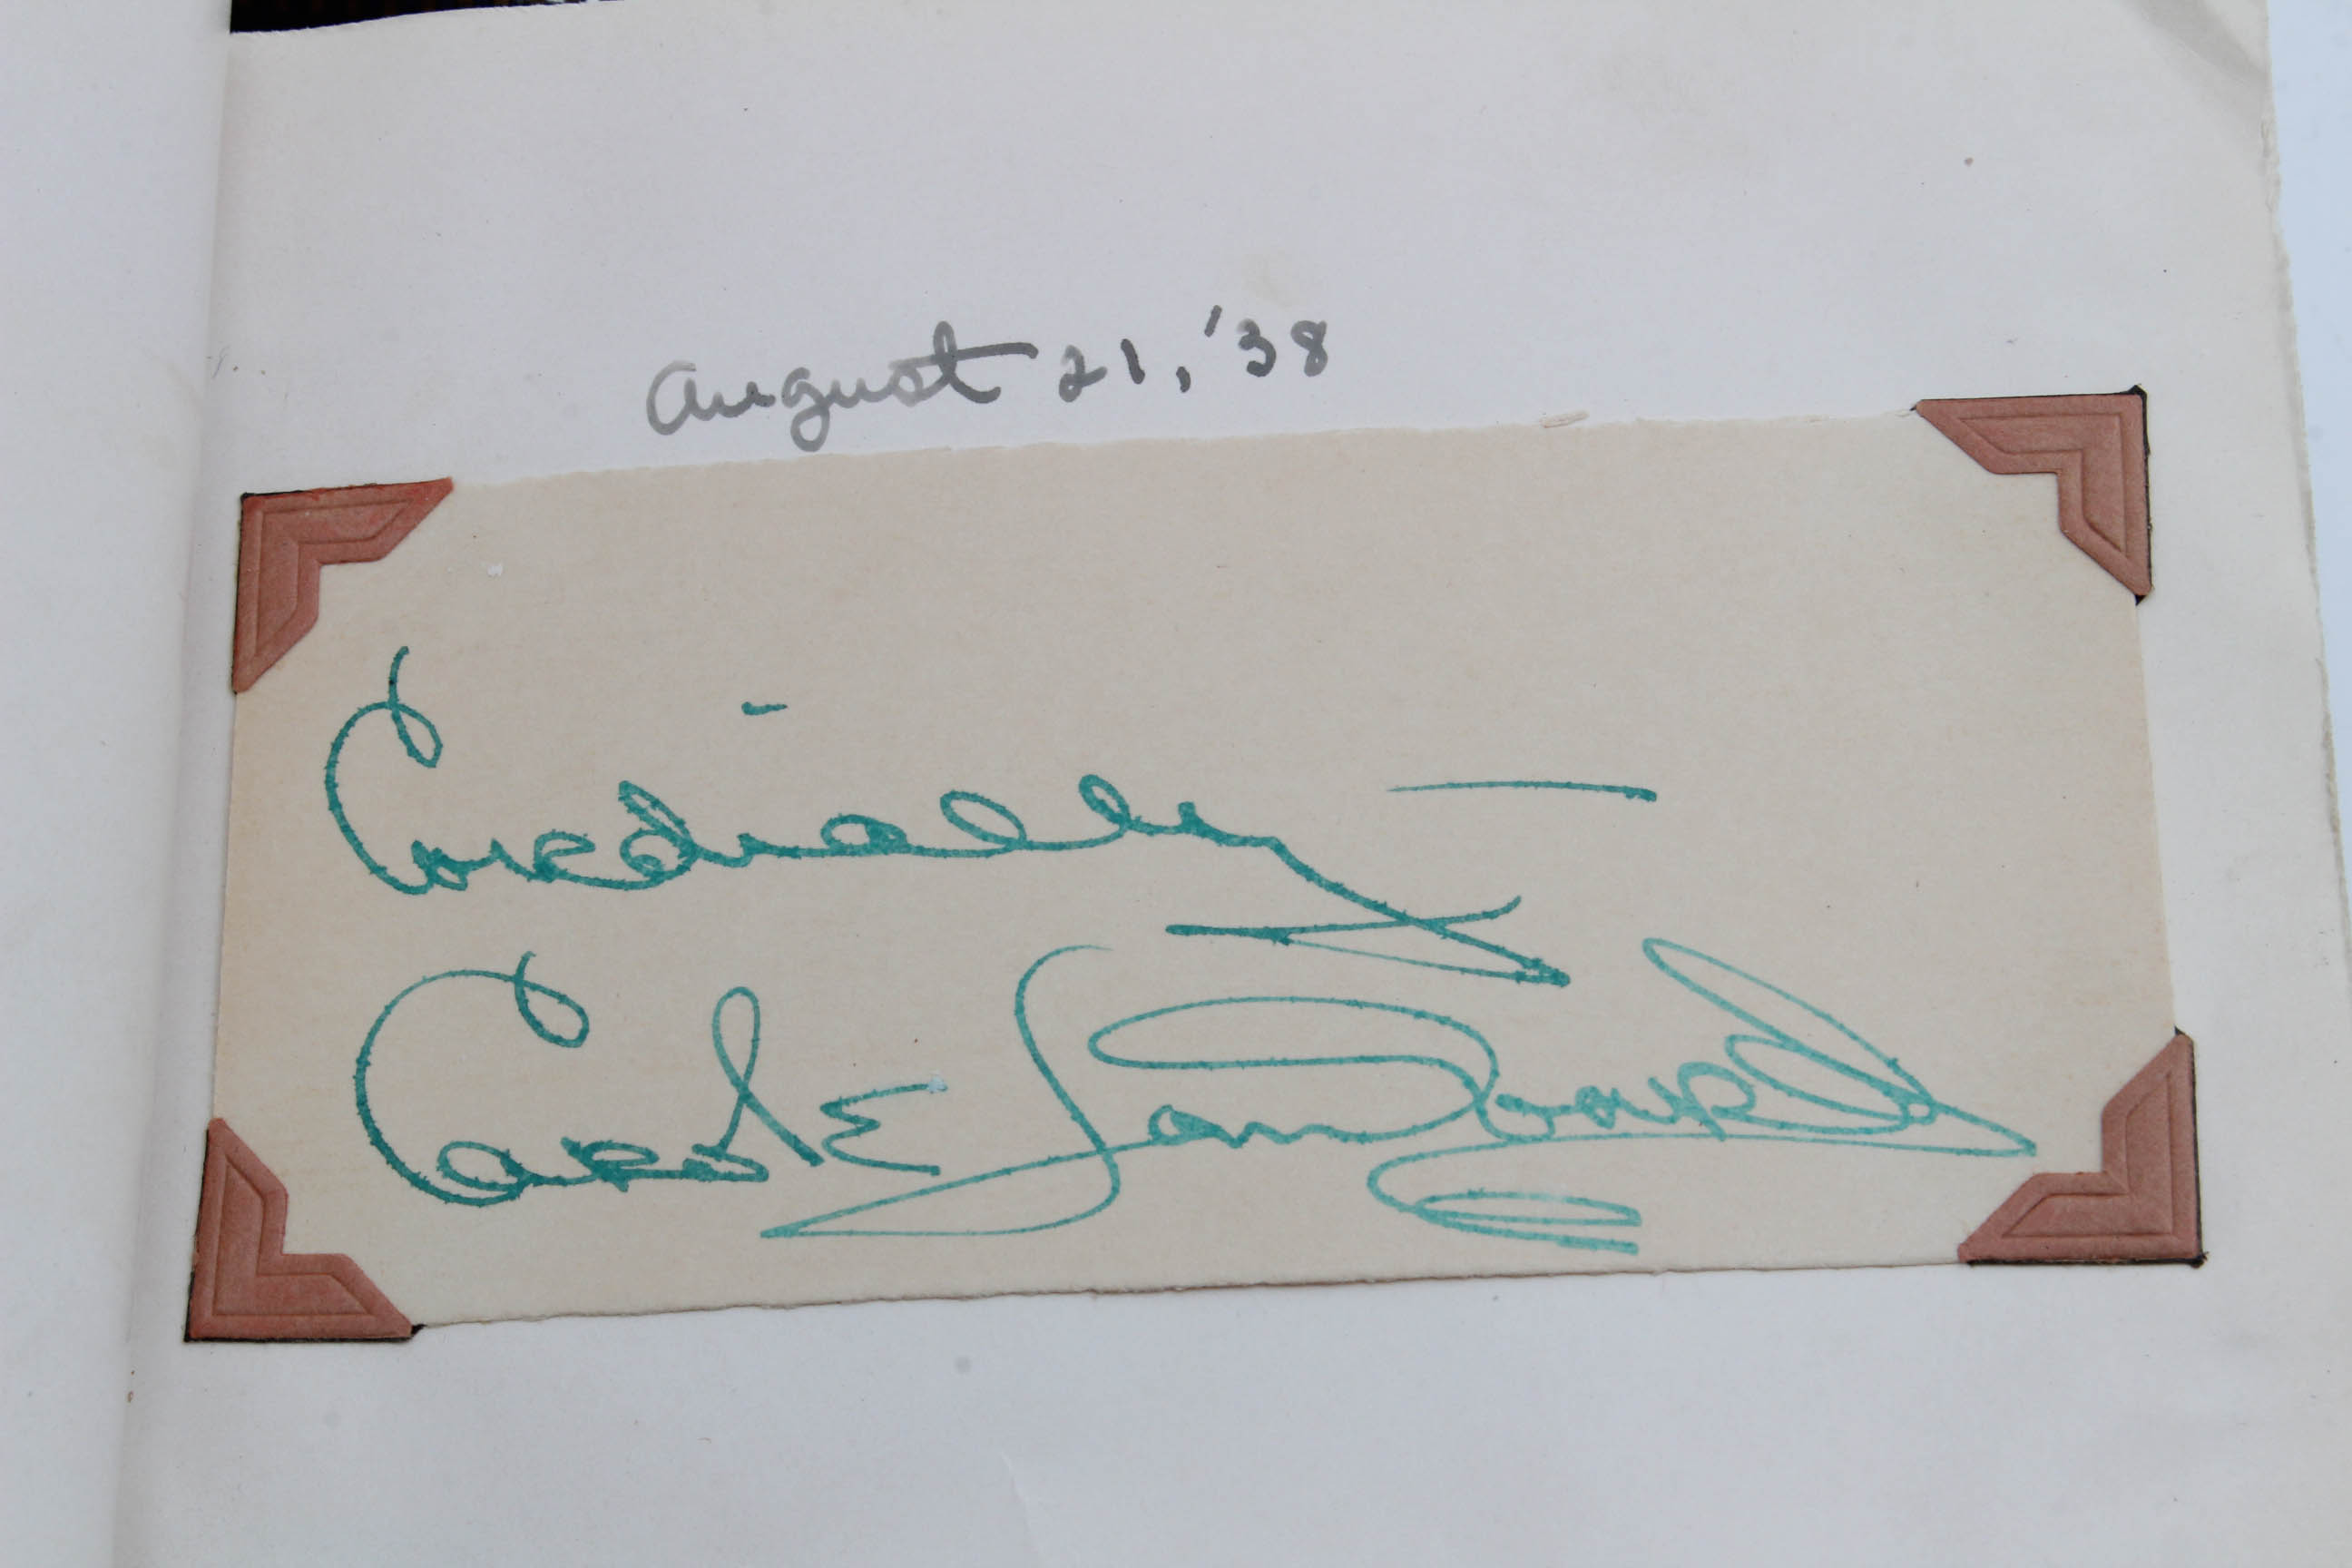 August 21, '38
Cordially —
Carole Lombard